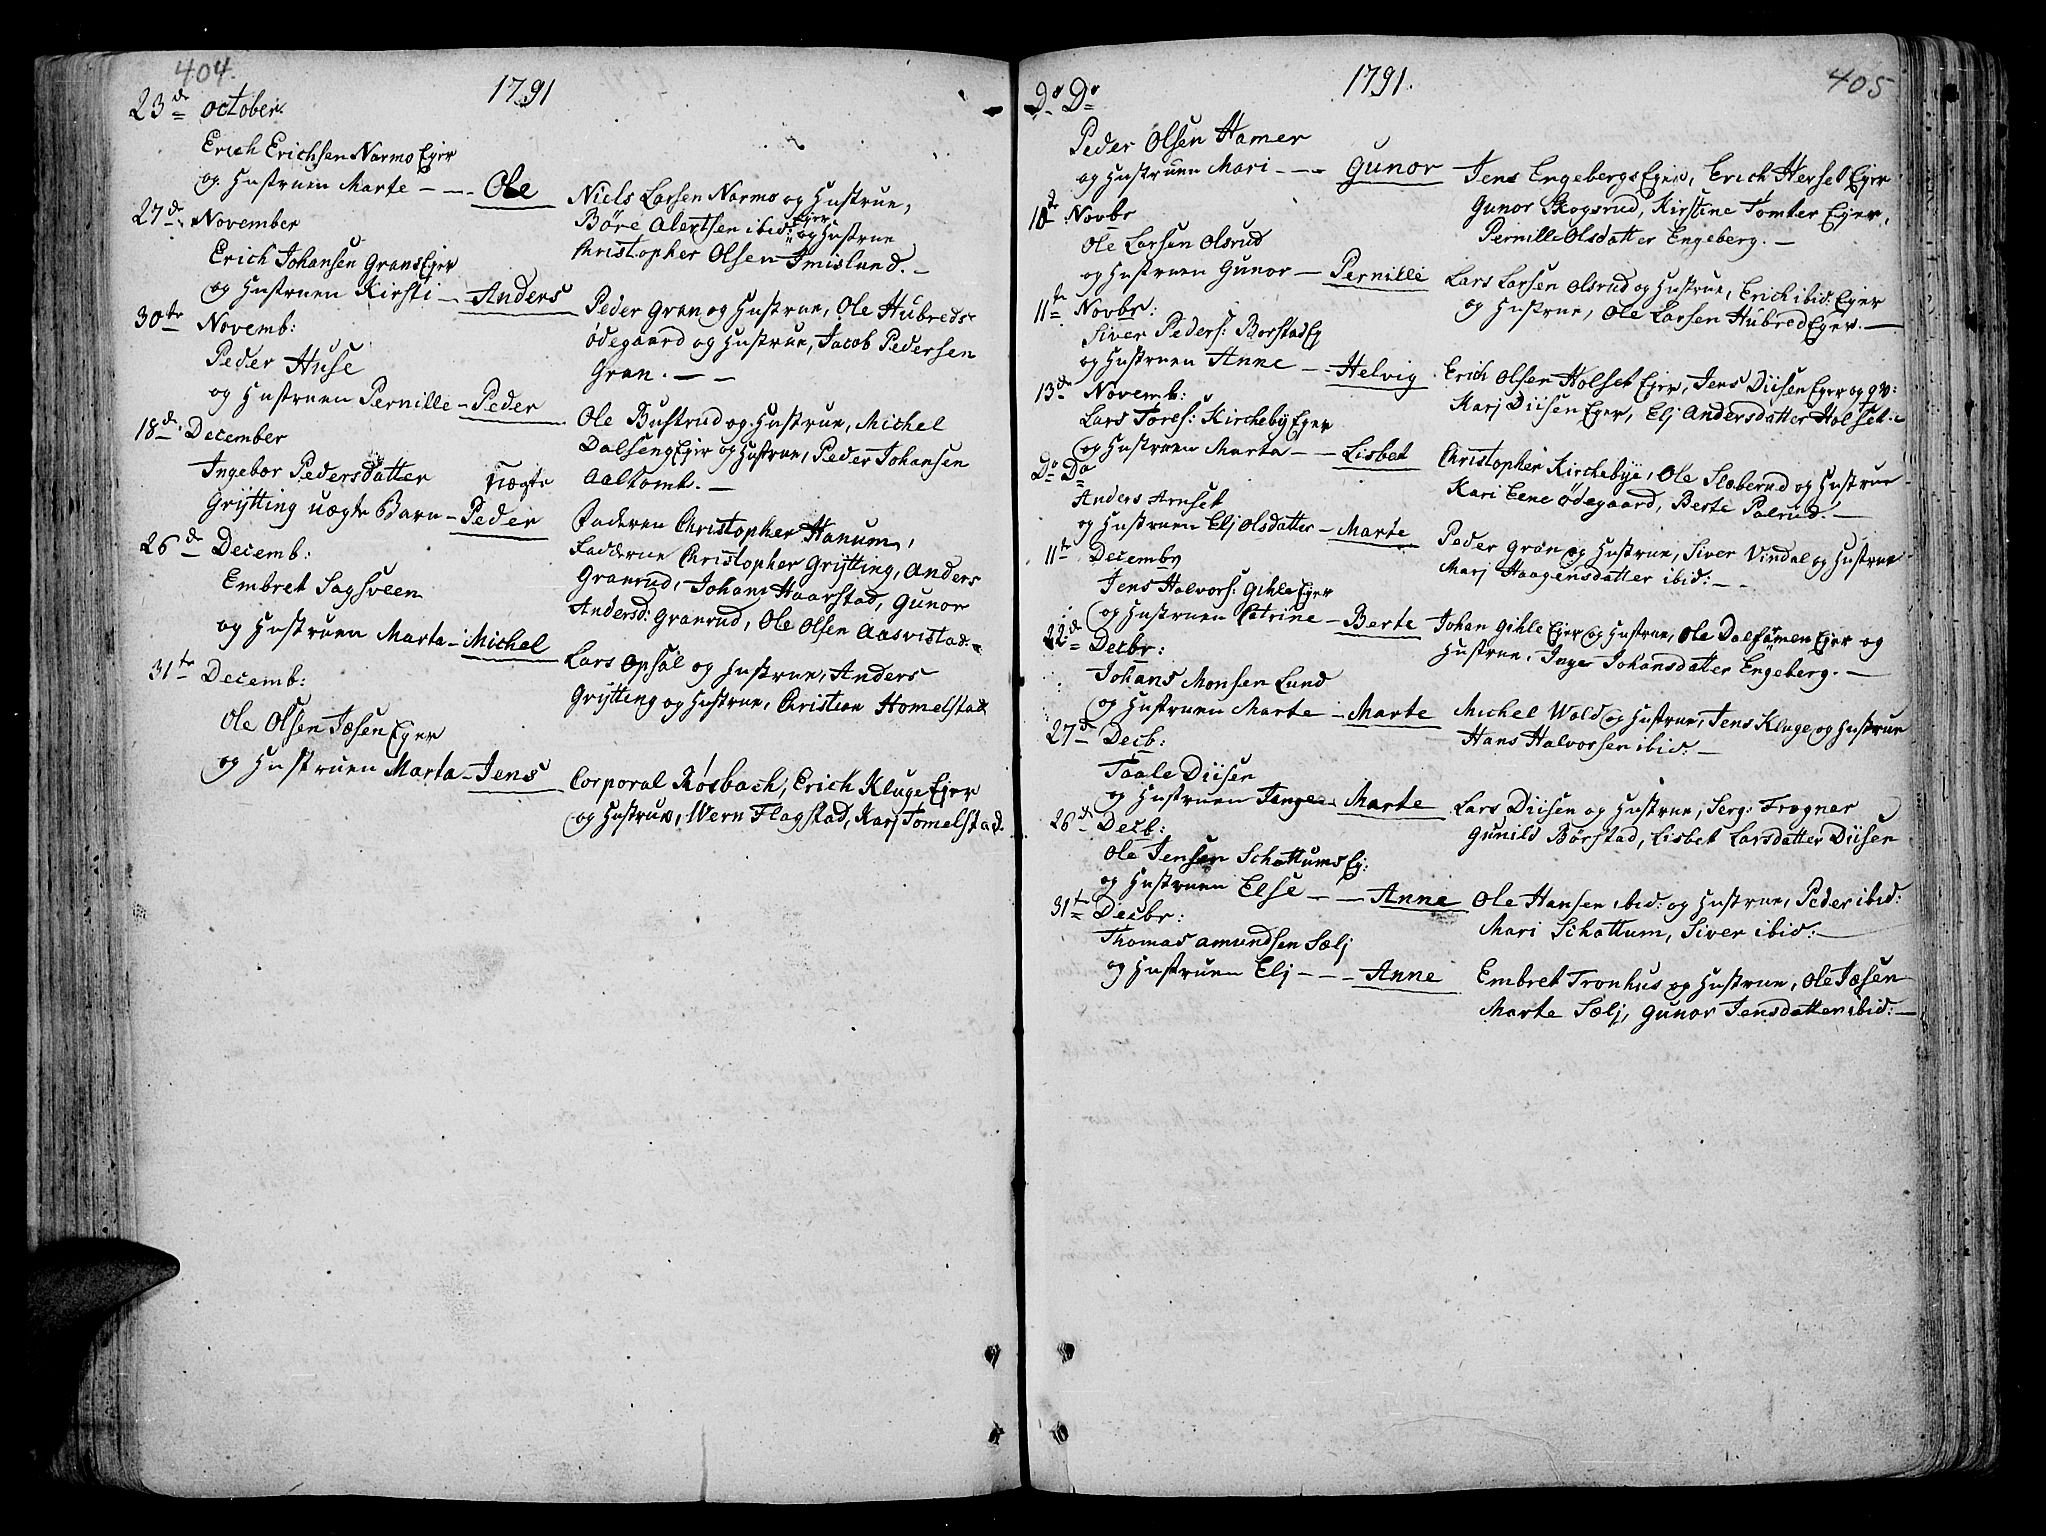 404.
1791
23de October.
Erich Erichsen Narmo Ejer
og Hustruen Marte - - Ole
Niels Larsen Narmo og Hustrue,
Böre Alertsen ibid: Ejer og Hustrue
Christopher Olsen Imislund. -
27de November
Erich Johansen Grans Ejer
og Hustruen Kirsti - Anders
Peder Gran og Hustrue, Ole Hubreds-
ödegaard og Hustrue, Jacob Pedersen
Gran. - -
30te Novemb:
Peder Huse
og Hustruen Pernille - Peder
Ole Bustrud og Hustrue, Michel
Dalseng Ejer og Hustrue, Peder Johansen
Aaltomt. -
18de December
Ingebor Pedersdatter uægte
Grÿtting uægte Barn - Peder
Faderen Christopher Hanum,
Fadderne Christopher Grÿtting, Anders
Granrud, Johans Haarstad, Gunor
Andersd: Granrud, Ole Olsen Aasvistad. -
26de Decemb:
Embret Sagsveen
og Hustruen Marta - Michel
Lars Opsal og Hustrue, Anders
Grÿtting og Hustrue, Christian Homelstad
31te Decemb:
Ole Olsen Jæsen Ejer
og Hustruen Marta - Jens
Corporal Rösbach, Erich Kluge Ejer
og Hustrue, Wern Flagstad, Karj Tomelstad.
1791.
405
Do Do
Peder Olsen Hamer
og Hustruen Mari - - - Gunor
Jens Engebergs Ejer, Erich Herset Ejer
Gunor Skogsrud, Kirstine Tomter Ejer,
Pernille Olsdatter Engeberg. -
10de Novbr
Ole Larsen Olsrud
og Hustruen Gunor - Pernille
Lars Larsen Olsrud og Hustrue, Erich ibid: Ejer
og Hustrue, Ole Larsen Hubred Ejer. -
11te Novbr:
Siver Peders: Borstad Ej
og Hustruen Anne - Helvig
Erich Olsen Holset Ejer, Jens Diisen Ejer og Qv:
Karj Diisen Ejer, Elj Andersdatter Holset. -
13de Novemb:
Lars Tores: Kirchebÿ Ejer
og Hustruen Marta - - Lisbet
Christopher Kirchebÿe, Ole Slæberud og Hustrue
Kari Eene Ödegaard, Berte Palrud. -
Do Do
Anders Arnset
og Hustruen Elj Olsdatter - Marte
Peder Gran og Hustrue, Siver Vindal og Hustrue
Marj Haagensdatter ibid: - -
11te Decembr
Jens Halvors: Gihle Ejer
og Hustruen Catrine - Berte
Johan Gihle Ejer og Hustrue, Ole Dalsömen Ejer og
Hustrue, Inger Johansdatter Engeberg. -
22de Decbr:
Johans Monsen Lund
og Hustruen Marte - Marte
Michel Wold og Hustrue, Jens Kluge og Hustrue
Hans Halvorsen ibid: -
27de Decb:
Taale Diisen
og Hustruen - Marte
Lars Diisen og Hustrue, Serg: Frogner
Gunild Börstad, Lisbet Larsdatter Diisen
26de Decb:
Ole Jensen Schattums Ej:
og Hustruen Else - - Anne
Ole Hansen ibid: og Hustrue, Peder ibid:
Mari Schattum, Siver ibid: -
31te Decbr:
Thomas Amundsen Sælj
og Hustruen Elj - - - Anne
Embret Tronhus og Hustrue, Ole Jæsen
Marte Sælj, Gunor Jensdatter ibid: -